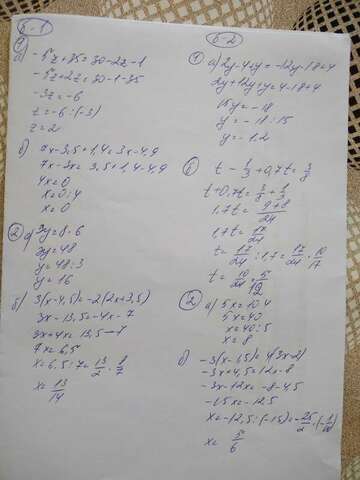 В-1
а) -5z+35=30-2z-1
-5z+2z=30-1-35
-3z=-6
z=-6:(-3)
z=2
б) 7x-3,5+1,4=3x-4,9
7x-3x=3,5+1,4-4,9
4x=0
x=0:4
x=0
② а) 3y=8·6
3y=48
y=48:3
y=16
б) 3(x-4,5)=-2(2x+3,5)
3x-13,5=-4x-7
3x+4x=13,5-7
7x=6,5
x=6,5:7=13/2·
x=13/14
В-2
а) 2y-4+y=-12y-18+4
15y=-18
y=-18:15
y=-1,2
б) t-1/3+0,7t=3/8
t+0,7t=3/8+1/3
1,7t=
1,7t=17/24
t=17/24:1,7=17/24·10/17
t=10/24 5/12
② а) 5x=10·4
5x=40
x=40:5
x=8
б) -3(x-1,5)=4(3x-2)
-3x+4,5=12x-8
-3x-12x=-8-4,5
-15x=-12,5
x=-12,5:(-15)=-25/2·
x=5/6